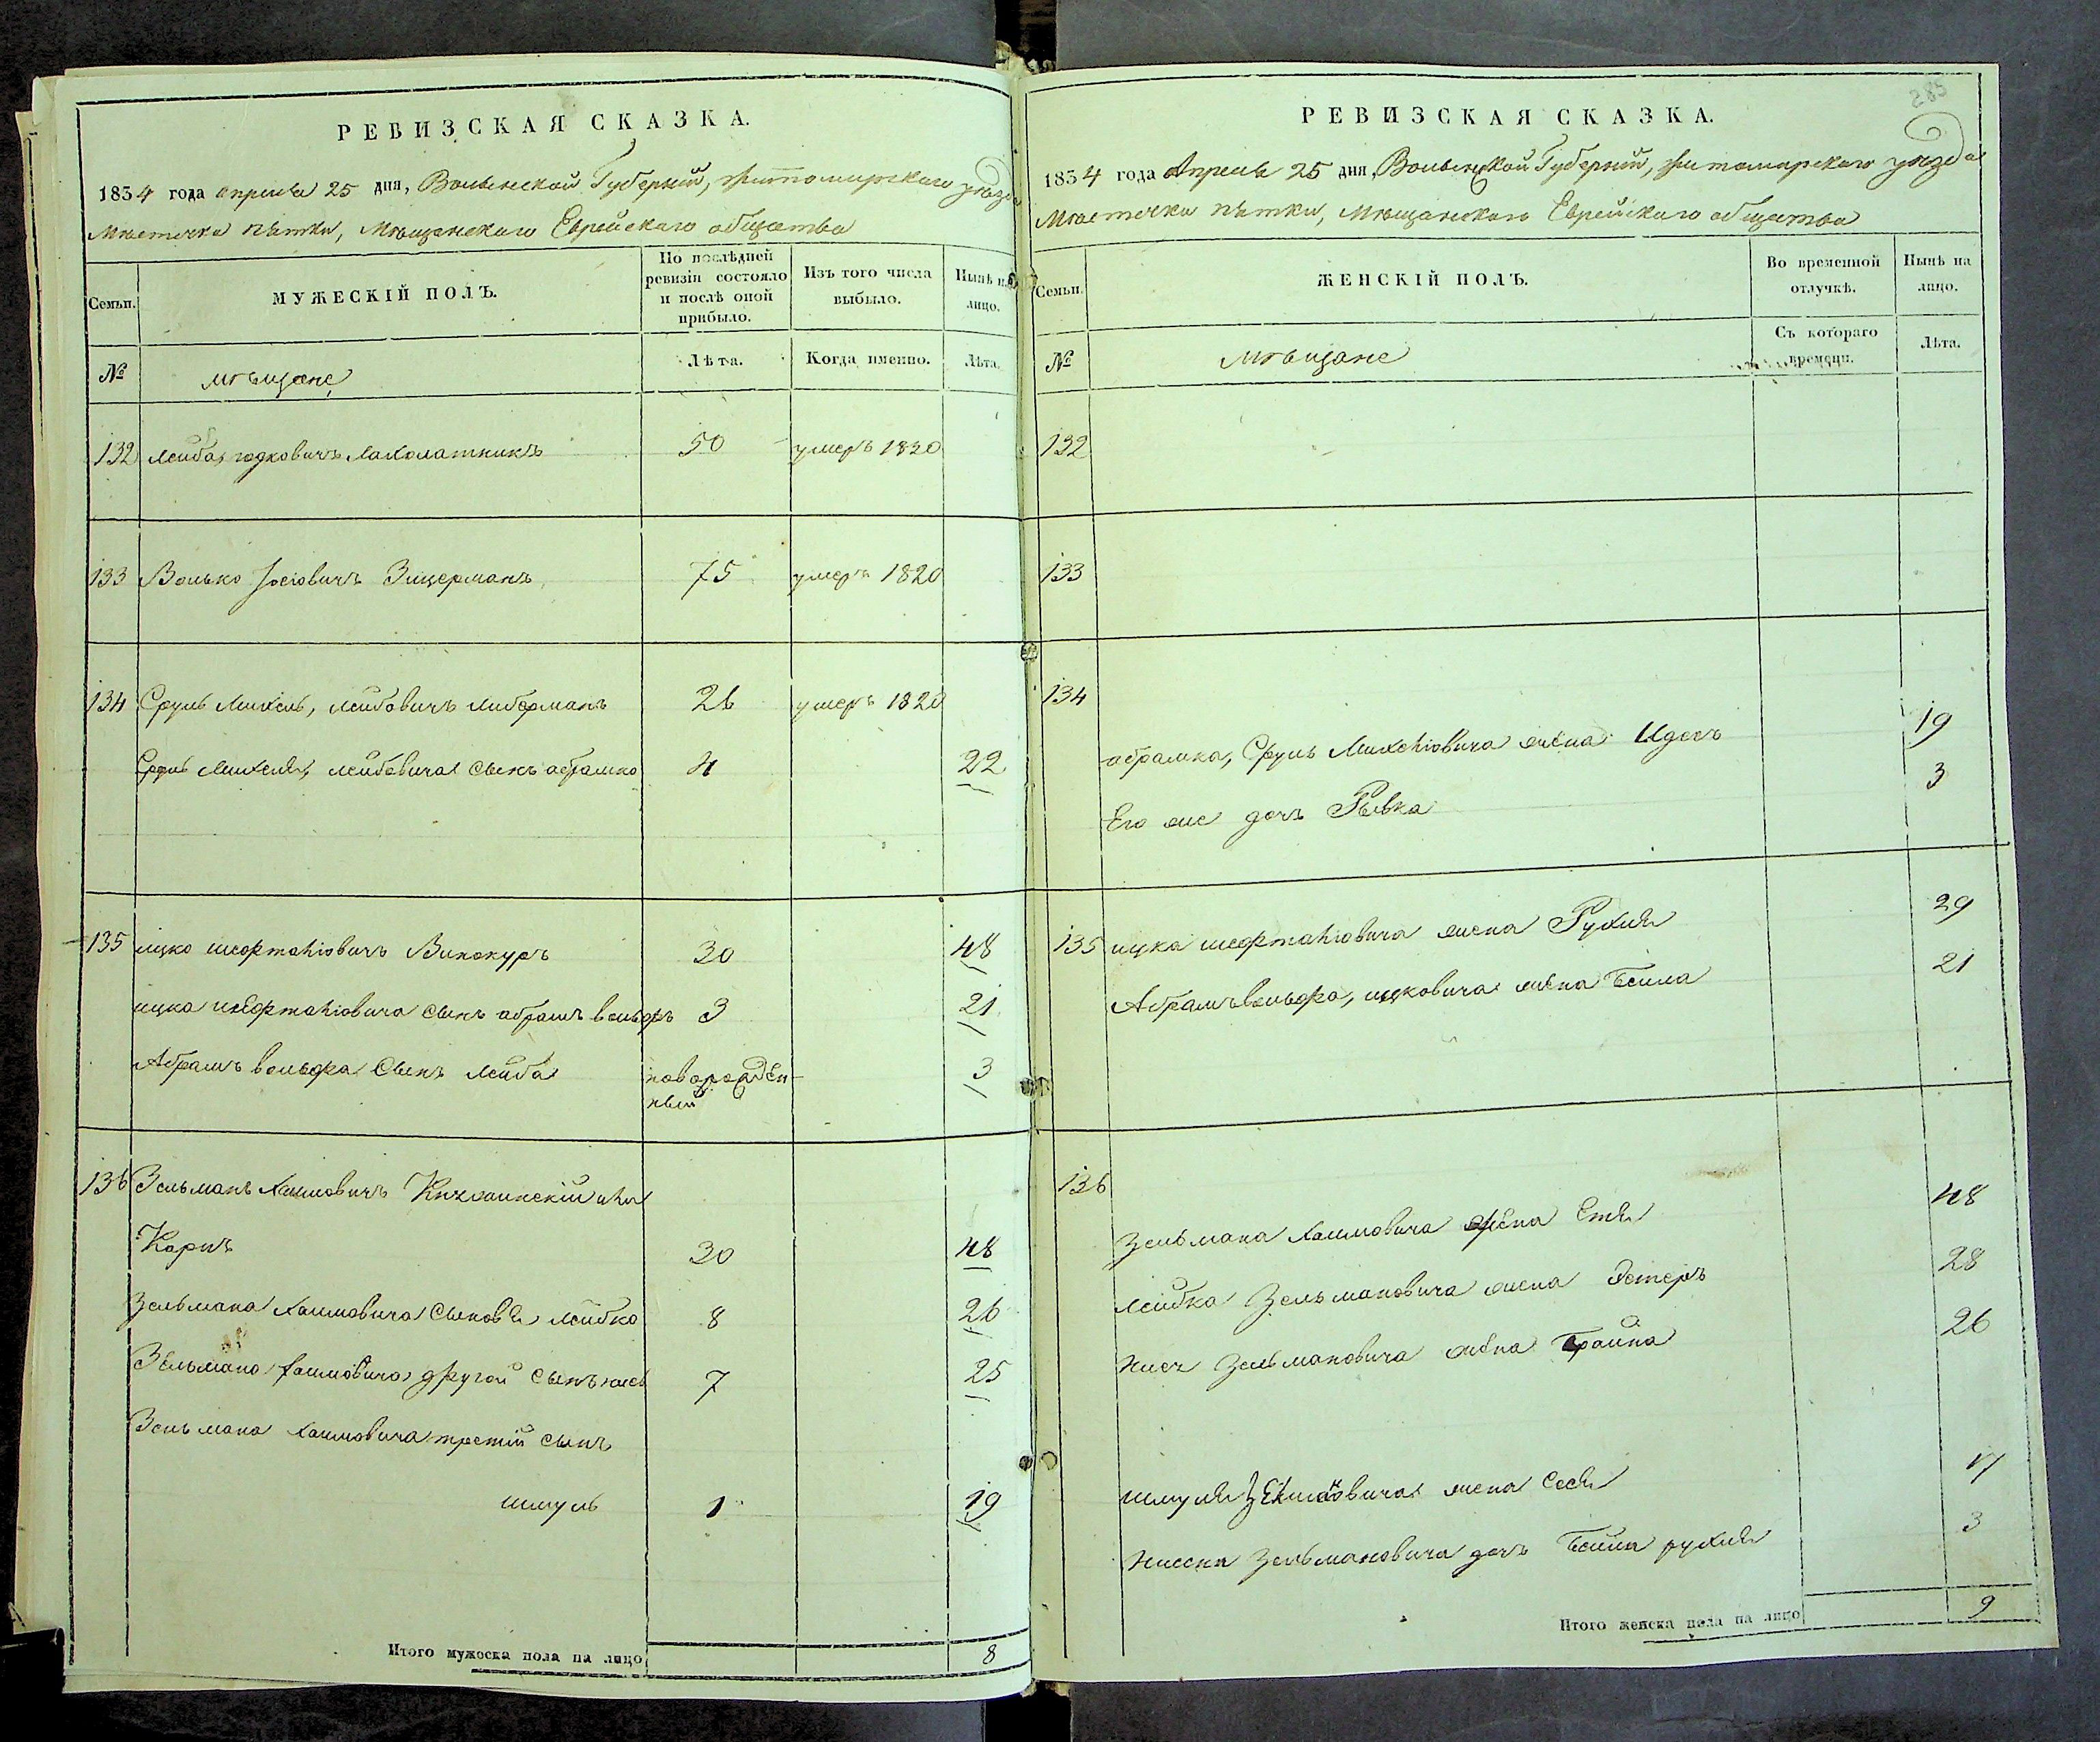 РЕВИЗСКАЯ СКАЗКА.
1834 года апреля 25 дня, Волынской Губерніи, житомирскаго уезда
Местечка пятки, Мещанскаго Еврейскаго общества
Семьи.
МУЖЕСКІЙ ПОЛЪ.
По послѣдней ревизіи состояло и послѣ оной прибыло.
Изъ того числа выбыло.
Нынѣ на лицо.
№
мѣщане
Лѣта.
Когда именно.
Лѣта.
132 Лейба юдковичъ Махолатникъ 50 умеръ 1820
133 Волько Іосіовичъ Зицерманъ 75 умеръ 1820
134 Сруль Михель, лейбовичъ либерманъ 26 умеръ 1820
Сруль Михеля, лейбовича сынъ абрамко 4 22
135 ицко шефталіовичъ Винокуръ 30 48
ицка шефталіовича сынъ абрамъ вольфъ 3 21
Абрамъ вольфа Сынъ лейба новорожден-
ный 3
136 Зельманъ Хаимовичъ или
Корнъ 30 48
Зельмана Хаимовича Сыновья лейбко 8 26
Зельмана Хаимовича другой Сынъ 7 25
Зельмана Хаимовича третій сынъ
шмуль 1 19
Итого мужеска пола на лицо 8
285
РЕВИЗСКАЯ СКАЗКА.
1834 года Апреля 25 дня, Волынской Губерніи, житомирскаго уезда
Местечка пятки, Мещанскаго Еврейскаго общества
Семьи.
ЖЕНСКІЙ ПОЛЪ.
Во временной отлучкѣ.
Нынѣ на лицо.
№
мѣщане
Съ котораго времени.
Лѣта.
132
133
134
абрамка, Сруль Михеліовича жена Идесъ 19
Его же дочь Рывка 3
135 ицка шефталіовича жена Рухля 29
Абрамъ вольфа, ицковича жена Бейла 21
136
Зельмана Хаимовича жена Етя 48
лейбка Зельмановича жена Эстеръ 28
Зельмановича жена Брайна 26
шмуля жена Сося 17
Зельмановича дочь Бейла рухля 3
Итого женска пола на лицо 9